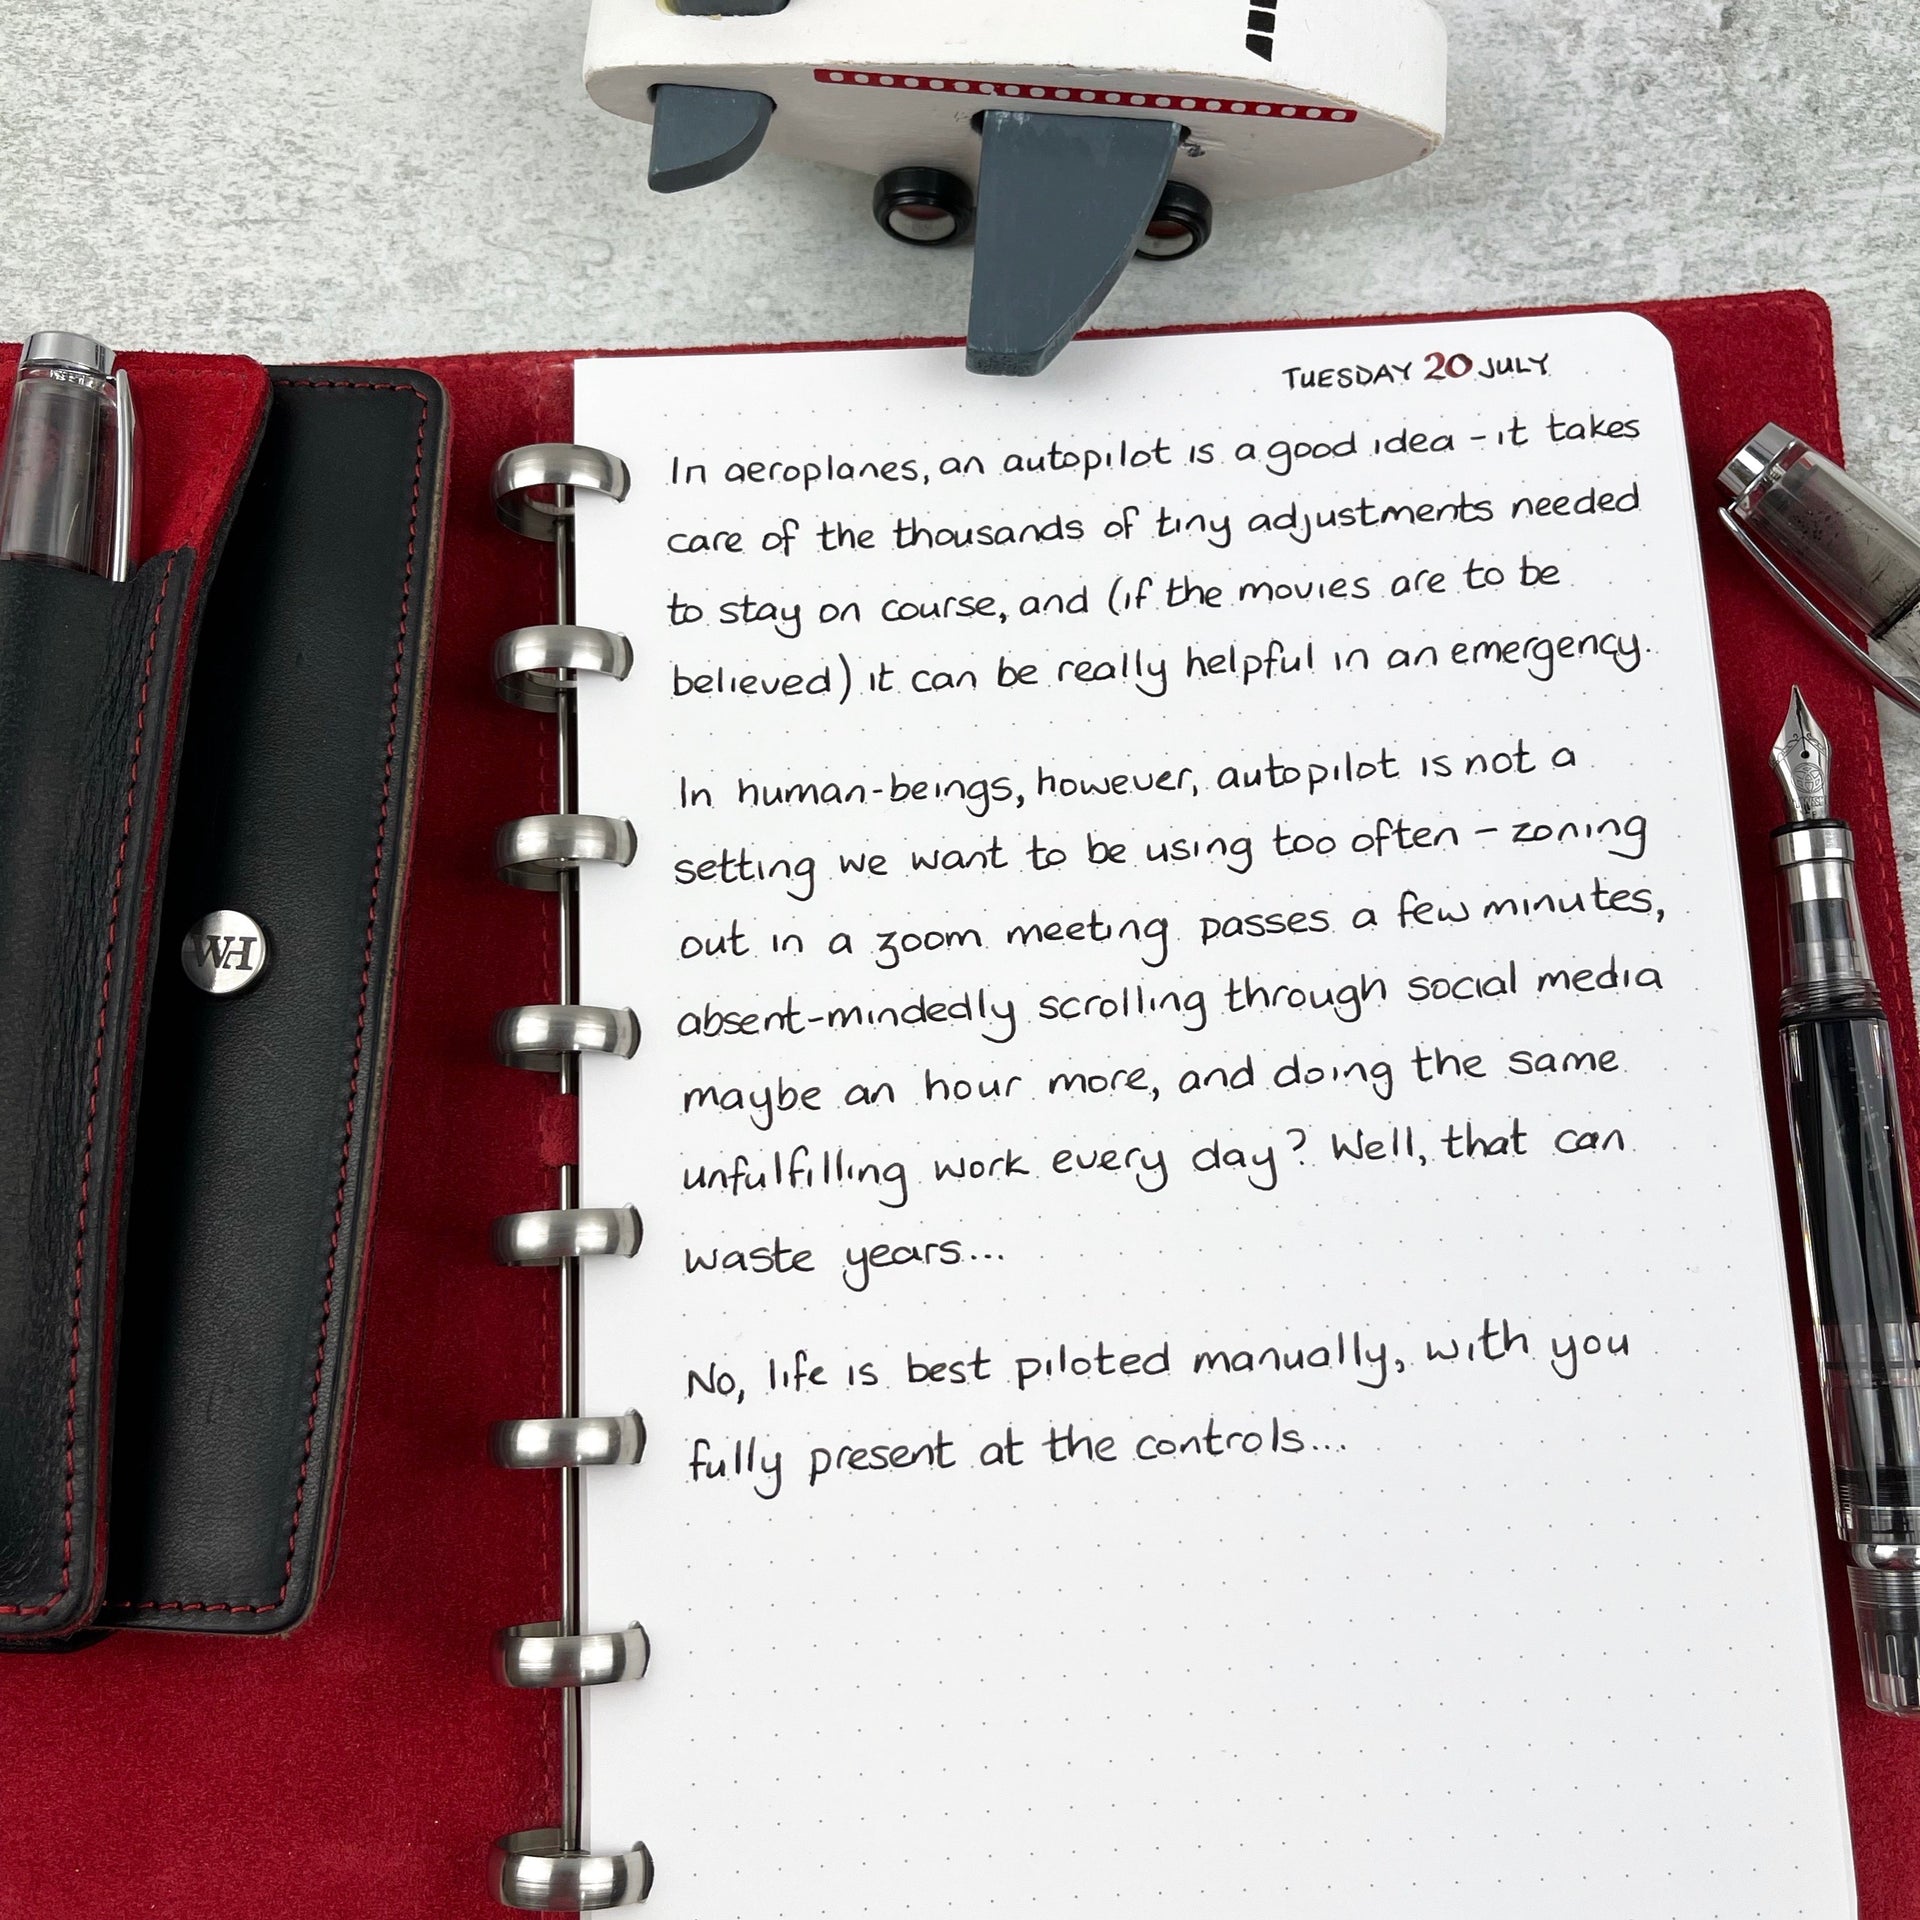 TUESDAY 20 JULY
In aeroplanes, an autopilot is a good idea - it takes
care of the thousands of tiny adjustments needed
to stay on course, and (if the movies are to be
believed) it can be really helpful in an emergency.
In human-beings, however, autopilot is not a
setting we want to be using too often - zoning
out in a zoom meeting passes a few minutes,
absent-mindedly scrolling through social media
maybe an hour more, and doing the same
unfulfilling work every day? Well, that can
waste years...
No, life is best piloted manually, with you
fully present at the controls...
WH